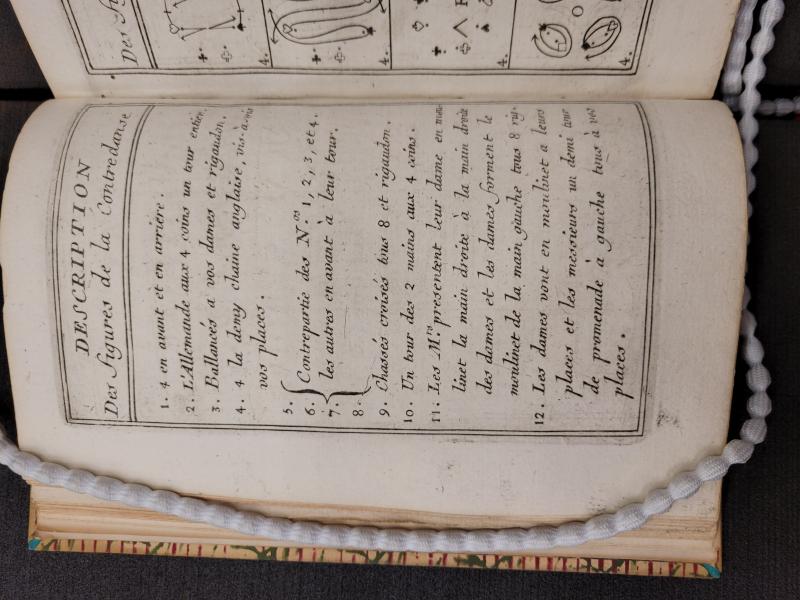 DESCRIPTION
Des figures de la Contredanse
1. 4 en avant et en arriére.
2. L'Allemande aux 4 coins un tour entier.
3. Ballancés a vos dames et rigaudon.
4. 4 la demy chaine anglaise, vis-à-vis
vos places.
5.
6. Contrepartie des Nos. 1, 2, 3, et 4.
7. les autres en avant à leur tour.
8.
9. Chassés croisés tous 8 et rigaudon.
10. Un tour des 2 mains aux 4 coins.
11. Les Mrs presentent leur dame en mou-
linet la main droite à la main droite
des dames et les dames forment le
moulinet de la main gauche tous 8 fig.
12. Les dames vont en moulinet a leurs
places et les messieurs un demi tour
de promenade à gauche tous à vos
places.
Des fi
4.
4.
4.
4.